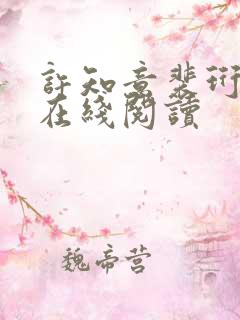 許知意裴珩
在綫閱讀
魏帝营